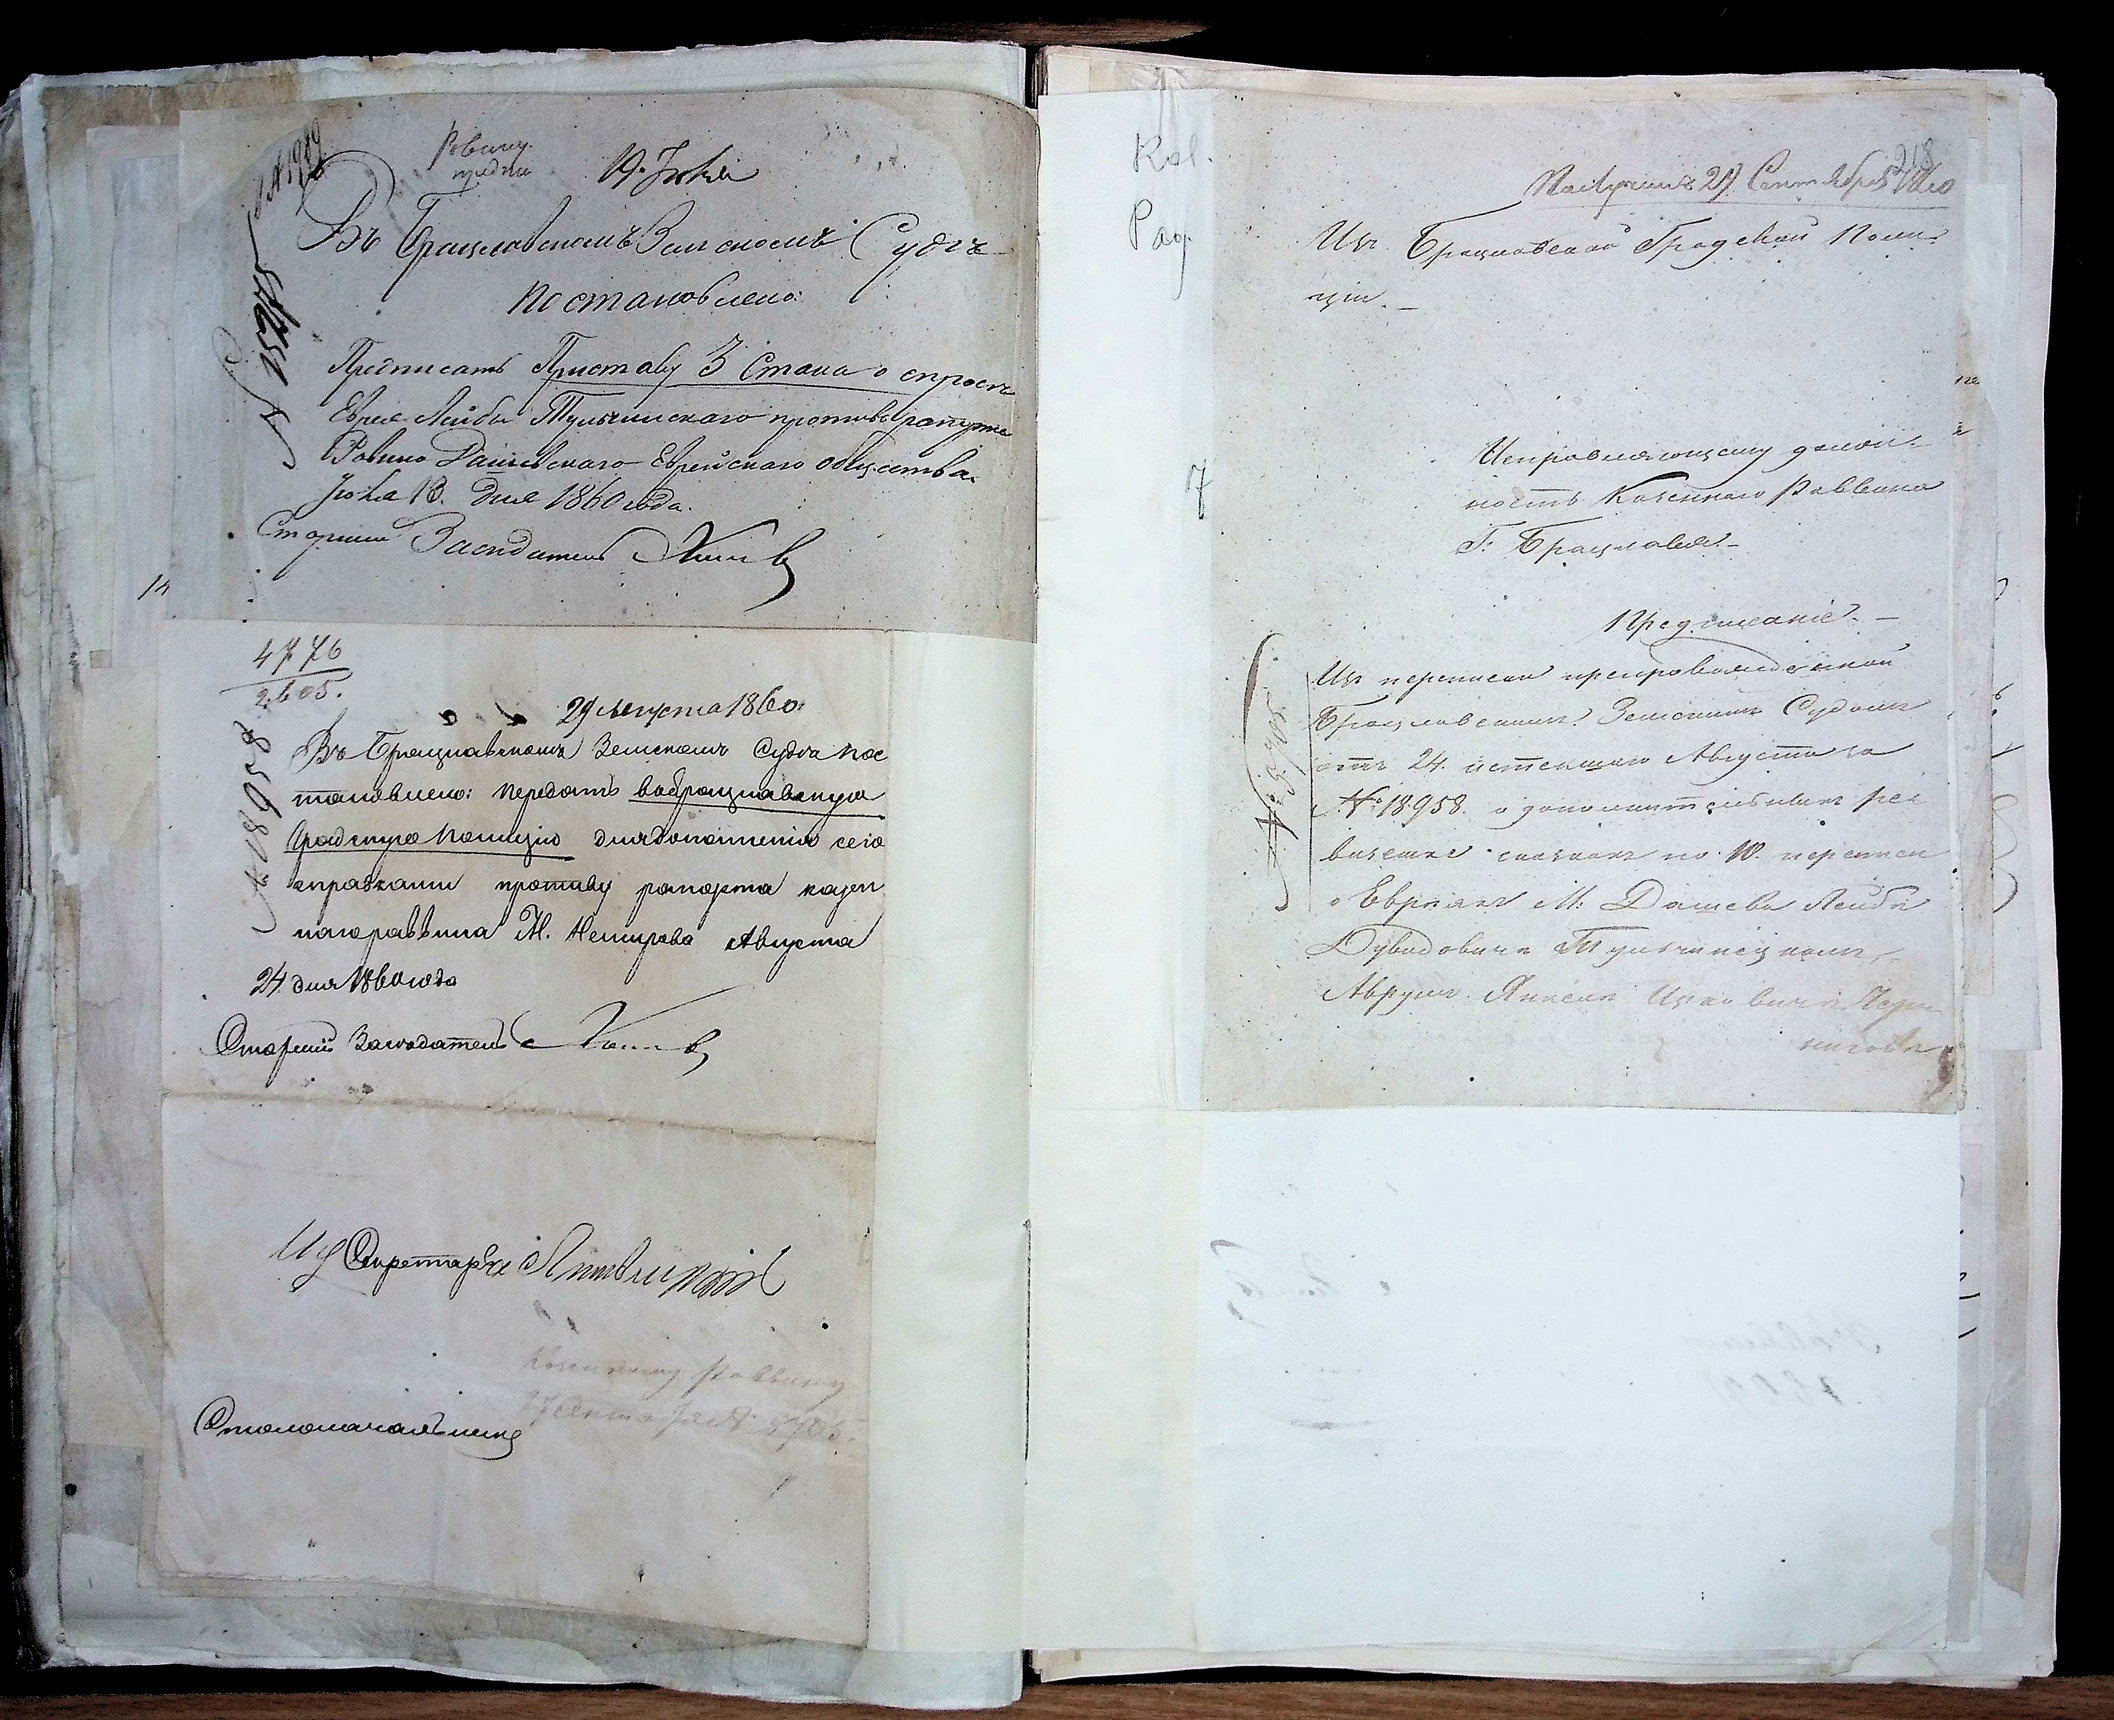 19 Июня
Въ Брацлавскомъ Земскомъ Судѣ
постановлено:
Предписать Приставу 3 Стана о спросѣ
Еврея Лейбы Тульчинскаго противъ рапорта
Равина Дашевскаго Еврейскаго общества.
Июня 13. дня 1860 года.
Старшій Засѣдатель
14
4776
2605.
29 Августа 1860.
Въ Брацлавскомъ Земскомъ Судѣ пос
тановлено: передать въ Брацлавскую
Градскую Полицію для дополненія сего
справками противу рапорта казен
наго раввина М. Немирова Августа
24 дня 1860 года
Старшій Засѣдатель
№ 18958
Секретаря
Казенному Раввину
Столоначальникъ
Kal.
Pag.
7
218
Получилъ 29 Сентября 1860
Изъ Брацлавской Градской Поли
ціи.
Исправляющему долж
ность Казеннаго Раввина
Г. Брацлава.
Предписаніе.
Изъ переписки препровожденной
Брацлавскимъ Земскимъ Судомъ
отъ 24. истекшаго Августа за
№ 18958. о дополнительныхъ ре
визскихъ сказкахъ по 10. переписи
о Евреяхъ М: Дашева Лейбѣ
Дувидовичѣ Тульчинецкомъ,
Аврумъ Янкелѣ Ицковичѣ Чер
нигови